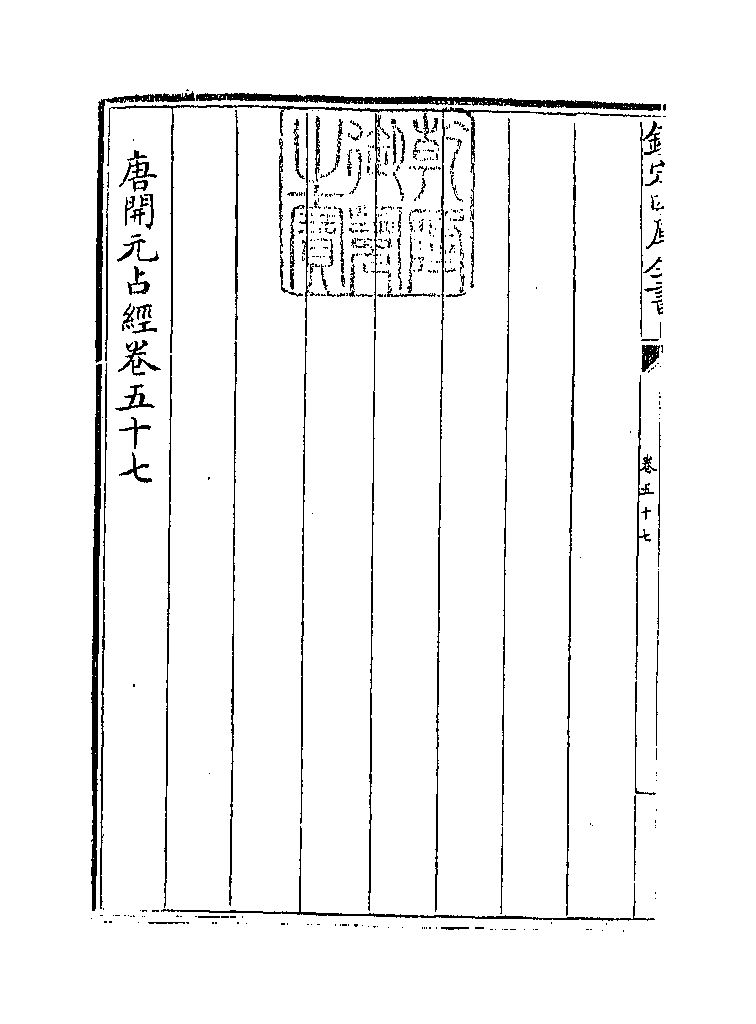 欽定四庫全書
卷五十七
乾隆御覽之寶
唐開元占經卷五十七